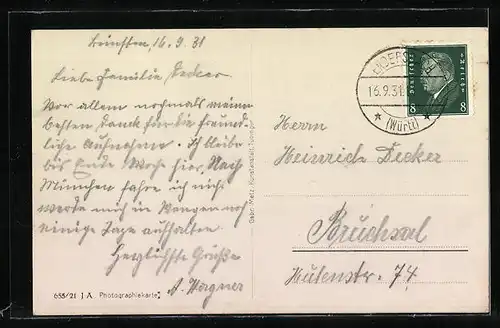 16.9.31
Liebe Familie Decker
Vor allem nochmals meinen
besten Dank für die freund-
liche Aufnahme. Ich bleibe
bis Ende Woche hier, Nach
München fahre ich nicht
werde mich in Wangen noch
einige Tage aufhalten
Herzlichste Grüße
A. Wagner
655/21 J A Photographiekarte
Gebr. Metz, Kunstanstalt, Tübingen
16.9.31
(Württ)
DEUTSCHES REICH
8 8
Herrn
Heinrich Decker
Bruchsal
Huttenstr. 74